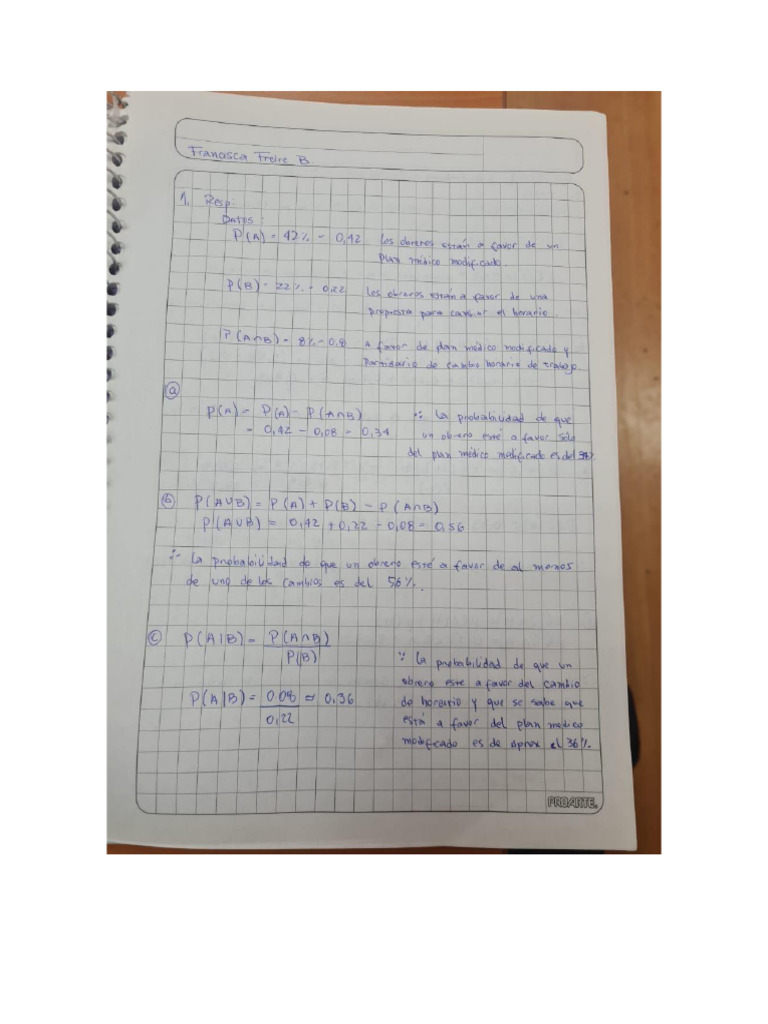 Francisca Freire B.
1. Resp:
Datos:
P(A) = 42% = 0,42 Los obreros están a favor de un
plan médico modificado.
P(B) = 22% = 0,22 Los obreros están a favor de una
propuesta para cambiar el horario.
P(A∩B) = 8% = 0,8 A favor de plan médico modificado y
Partidario de cambio horario de trabajo.
a
P(A) = P(A) - P(A∩B) ∴ La probabilidad de que
= 0,42 - 0,08 = 0,34 un obrero esté a favor solo
del plan médico modificado es del 34%
b P(A∪B) = P(A) + P(B) - P(A∩B)
P(A∪B) = 0,42 + 0,22 - 0,08 = 0,56
∴ La probabilidad de que un obrero esté a favor de al menos
de uno de los cambios es del 56%.
c P(A|B) = P(A∩B)
P(B)
∵ La probabilidad de que un
obrero este a favor del cambio
P(A|B) = 0,08 ≈ 0,36 de horario y que se sabe que
0,22 está a favor del plan medico
modificado es de aprox el 36%.
PROARTE.